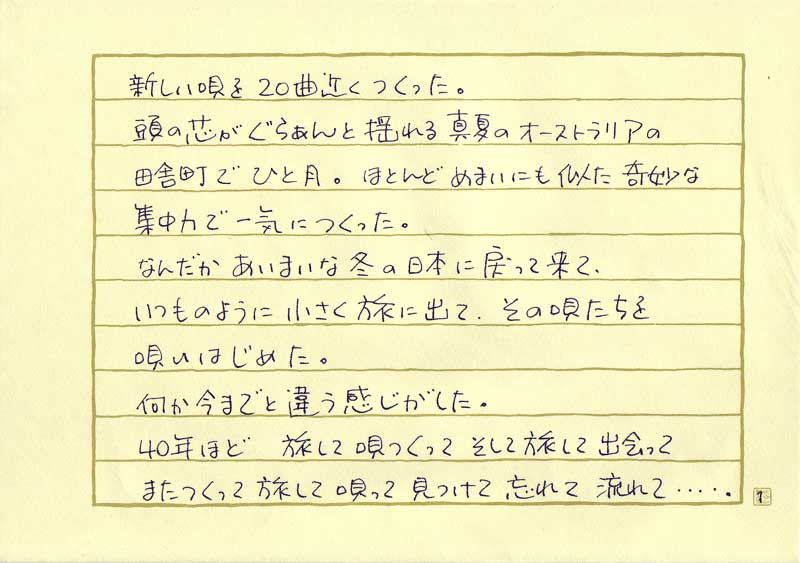 新しい唄を 20曲近く つくった。
頭の芯が ぐらぁんと 揺れる 真夏の オーストラリアの
田舎町で ひと月。 ほとんど めまいにも 似た 奇妙な
集中力で 一気に つくった。
なんだか あいまいな 冬の 日本に 戻って 来て、
いつものように 小さく 旅に 出て、 その 唄たちを
唄いはじめた。
何か 今までと 違う 感じがした。
40年ほど 旅して 唄つくって そして 旅して 出会って
またつくって 旅して 唄って 見つけて 忘れて 流れて‥‥‥。